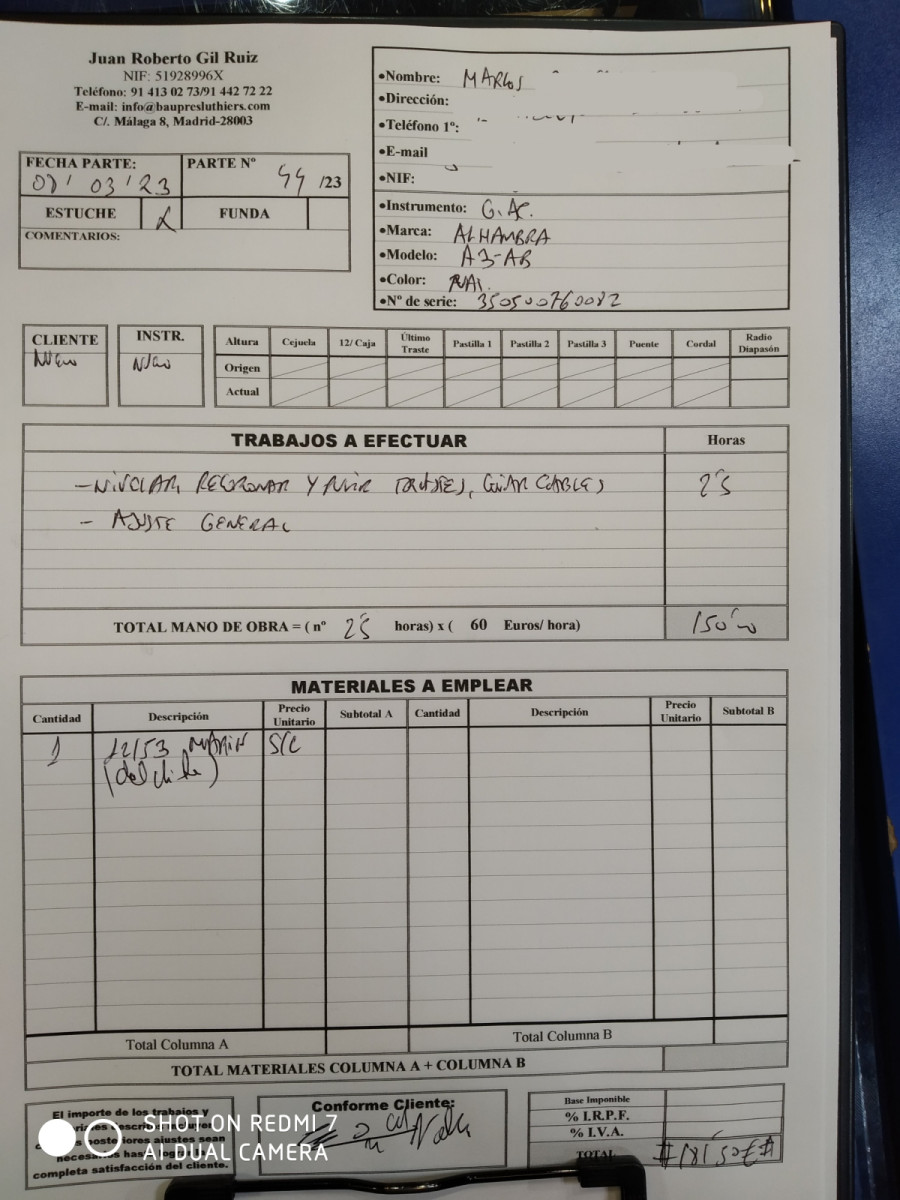 Juan Roberto Gil Ruiz
NIF: 51928996X
Teléfono: 91 413 02 73/91 442 72 22
E-mail: info@baupresluthiers.com
C/. Málaga 8, Madrid-28003
FECHA PARTE: PARTE Nº
03'23 44 /23
ESTUCHE FUNDA
COMENTARIOS:
•Nombre: MARCOS
•Dirección:
•Teléfono 1º:
•E-mail
•NIF:
•Instrumento: G. AC.
•Marca: ALHAMBRA
•Modelo: A3-AB
•Color: NAT.
•Nº de serie: 350500760082
CLIENTE
Nuevo
INSTR.
Nuevo
Altura Cejuela 12/ Caja Último Traste Pastilla 1 Pastilla 2 Pastilla 3 Puente Cordal Radio Diapasón
Origen
Actual
TRABAJOS A EFECTUAR Horas
- NIVELAR, RECORONAR Y PULIR TRASTES, CABLES 2'5
- AJUSTE GENERAL
TOTAL MANO DE OBRA = ( nº 2'5 horas) x ( 60 Euros/ hora) 150'00
MATERIALES A EMPLEAR
Cantidad Descripción Precio Unitario Subtotal A Cantidad Descripción Precio Unitario Subtotal B
1 12/53 MARTIN S/C
(del cliente)
Total Columna A Total Columna B
TOTAL MATERIALES COLUMNA A + COLUMNA B
El importe de los trabajos y
posteriores ajustes sean
completa satisfacción del cliente.
Conforme Cliente:
Base Imponible
% I.R.P.F.
% I.V.A.
TOTAL #181'50€#
SHOT ON REDMI 7
AI DUAL CAMERA